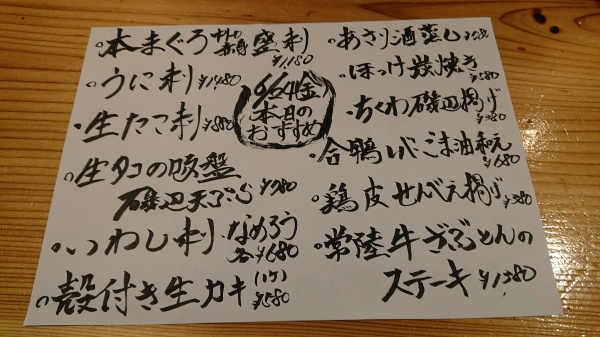 本まぐろ 中トロ 赤身 盛刺 ¥1,180
うに刺 ¥1,480
生たこ刺 ¥880
生タコの吸盤
磯辺天ぷら ¥780
いわし刺 なめろう
各¥680
殻付き生カキ (1ケ) ¥580
6/24金
本日の
おすすめ
あさり酒蒸し
ほっけ炭焼き
¥580
ちくわ磯辺揚げ
¥380
合鴨レバごま油和え
¥680
鶏皮せんべえ揚げ ¥380
常陸牛ざぶとんの
ステーキ ¥1,280